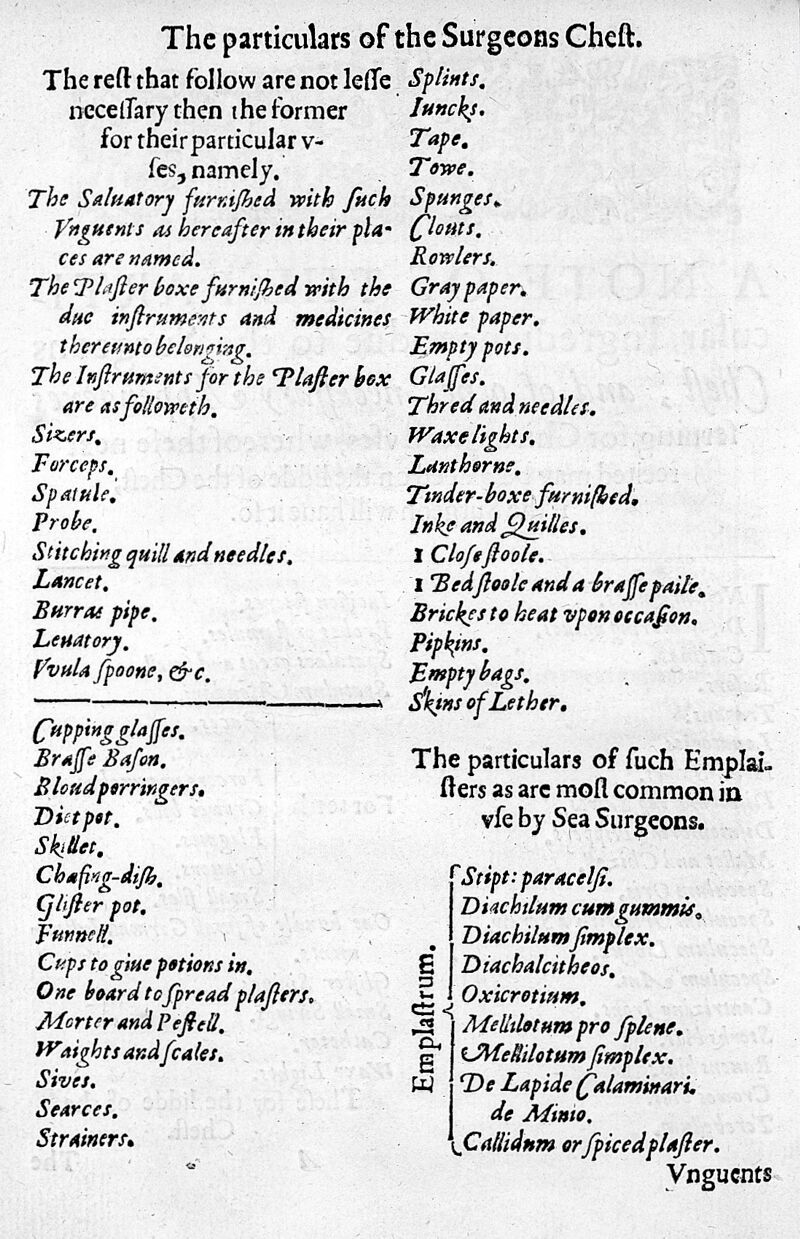 The particulars of the Surgeons Cheſt.
The reſt that follow are not leſſe
neceſſary then the former
for their particular v-
ſes, namely.
The Saluatory furniſhed with ſuch
Vnguents as hereafter in their pla-
ces are named.
The Plaſter boxe furniſhed with the
due inſtruments and medicines
thereunto belonging.
The Inſtruments for the Plaſter box
are as followeth.
Sizers.
Forceps.
Spatule.
Probe.
Stitching quill and needles.
Lancet.
Burras pipe.
Leuatory.
Vvula ſpoone, &c.
Cupping glaſſes.
Braſſe Baſon.
Bloud porringers.
Diet pot.
Skillet.
Chafing-diſh.
Gliſter pot.
Funnell.
Cups to giue potions in.
One board to ſpread plaſters.
Morter and Peſtell.
Waights and ſcales.
Sives.
Searces.
Strainers.
Splints.
Iuncks.
Tape.
Towe.
Spunges.
Clouts.
Rowlers.
Gray paper.
White paper.
Empty pots.
Glaſſes.
Thred and needles.
Waxe lights.
Lanthorne.
Tinder-boxe furniſhed.
Inke and Quilles.
1 Cloſe ſtoole.
1 Bedſtoole and a braſſe paile.
Brickes to heat vpon occaſion.
Pipkins.
Empty bags.
Skins of Lether.
The particulars of ſuch Emplai-
ſters as are moſt common in
vſe by Sea Surgeons.
Emplaſtrum.
Stipt: paracelſi.
Diachilum cum gummis.
Diachilum ſimplex.
Diachalcitheos.
Oxicrotium.
Mellilotum pro ſplene.
Mellilotum ſimplex.
De Lapide Calaminari.
de Minio.
Callidum or ſpiced plaſter.
Vnguents